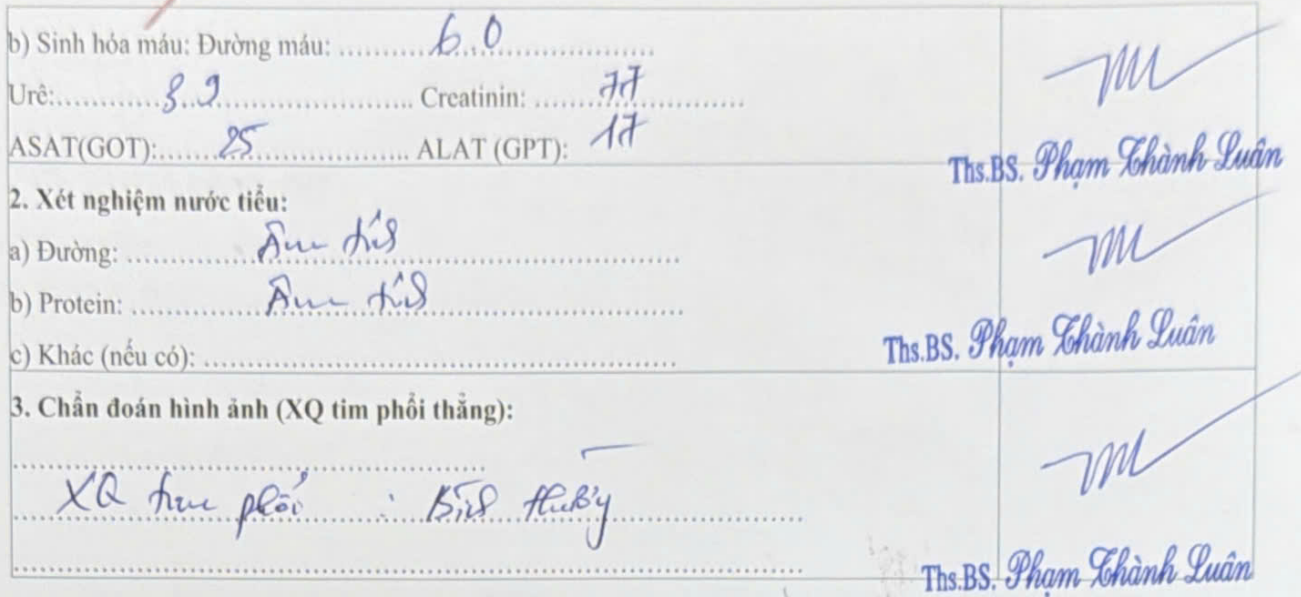 b) Sinh hóa máu: Đường máu: .......... 6.0 ..........
Urê: .......... 3.9 .......... Creatinin: .......... 77 ..........
ASAT(GOT): .......... 25 .......... ALAT (GPT): 17
Ths.BS. Phạm Thành Luân
2. Xét nghiệm nước tiểu:
a) Đường: .......... Âm tính ..........
b) Protein: .......... Âm tính ..........
c) Khác (nếu có): ..........
Ths.BS. Phạm Thành Luân
3. Chẩn đoán hình ảnh (XQ tim phổi thẳng):
XQ tim phổi : Bình thường
Ths.BS. Phạm Thành Luân